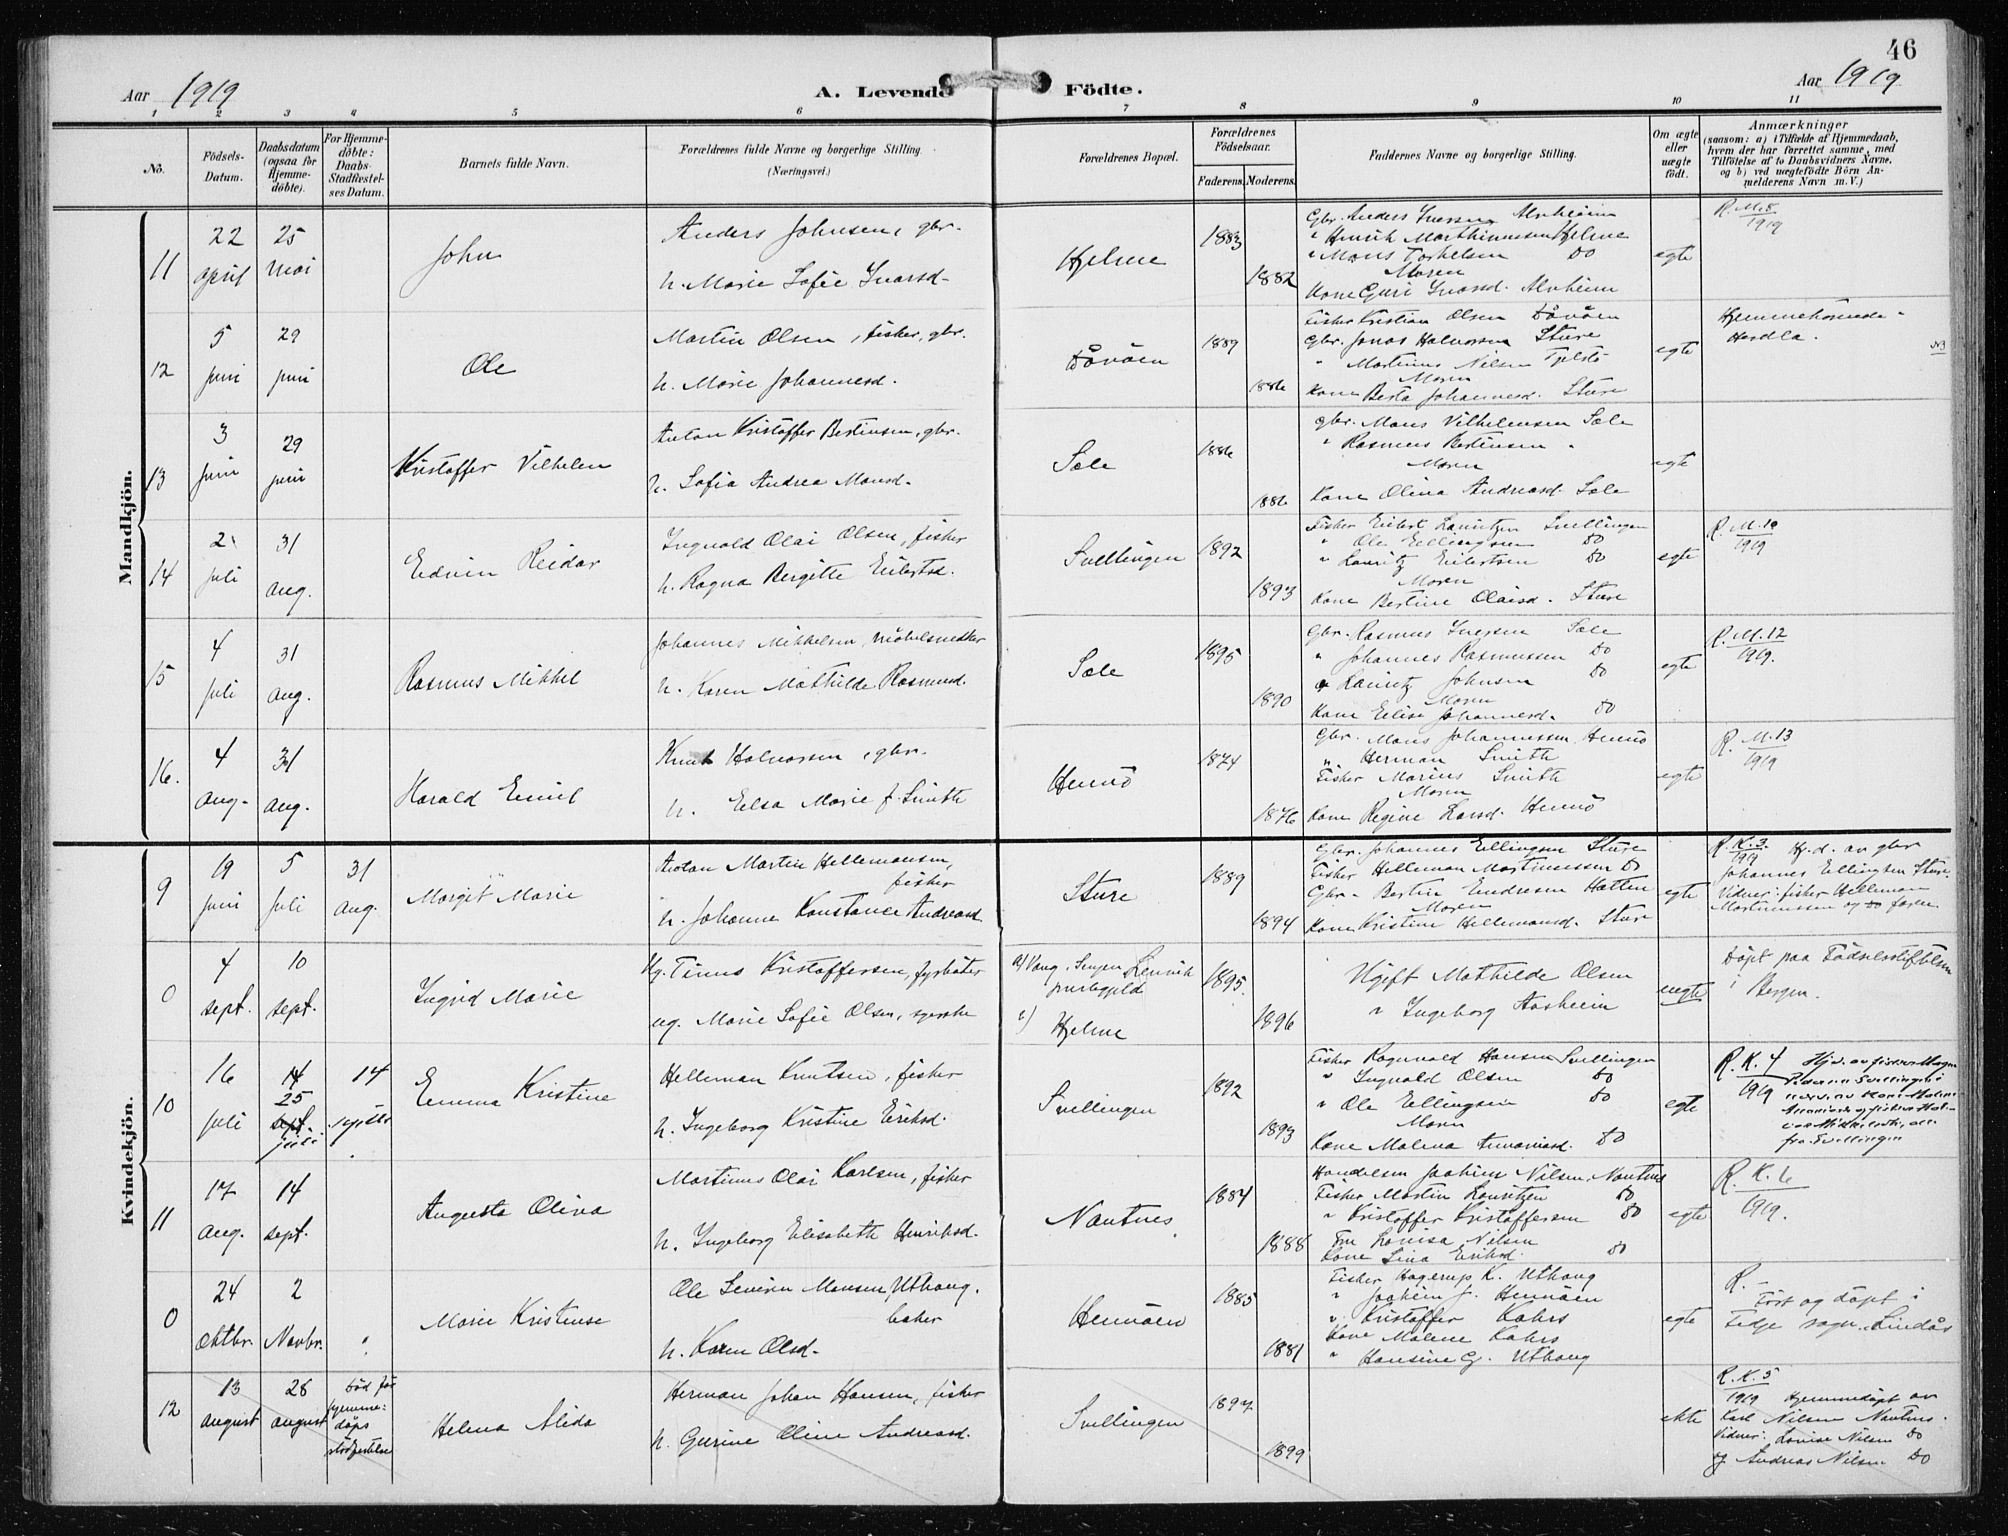 46
Aar 1919
A. Levende Födte.
Aar 1919
1 2 3 4 5 6 7 8 9 10 11
No.
Födsels-Datum.
Daabsdatum (ogsaa för Hjemme-döbte).
For Hjemme-döbte: Daabs-Stadfæstel-ses Datum.
Barnets fulde Navn.
Forældrenes fulde Navne og borgerlige Stilling.
(Næringsvei.)
Forældrenes Bopæl.
Forældrenes Födselsaar.
Faderens. Moderens.
Faddernes Navne og borgerlige Stilling.
Om ægte eller uægte födt.
Anmærkninger
(saasom: a) i Tilfælde af Hjemmedaab, hvem der har forrettet samme, med Tilföielse af to Daabsvidners Navne, og b) ved uægtefödte Börn An-melderens Navn m.V.)
Mandkjön.
11
22 april
25 mai
John
Anders Johnsen, gbr.
h. Marie Sofie Ivarsd.
Hjelme
1883
1882
Gbr. Anders Iversen Alvheim
" Henrik Marthinussen Hjelme
" Mons Torkelsen Do
Moren
Kone Guri Ivarsd. Alvheim
egte
R. M. 8
1919
12
5 juni
29 juni
Ole
Martin Olsen, fisker, gbr.
h. Marie Johannesd.
Dåvöen
1889
1886
Fisker Kristian Olsen Dåvöen
Gbr. Jonas Halvorsen Sture
" Martinus Nilsen Tjelstö
Moren
Kone Berta Johannesd. Sture
egte
Hjemmehörende
Herdla.
13
3 juni
29 juni
Kristoffer Vilhelm
Anton Kristoffer Bertinsen, gbr.
h. Sofia Andrea Monsd.
Sæle
1886
1886
gbr. Mons Vilhelmsen Sæle
" Rasmus Bertinsen "
Moren
Kone Olina Andreasd. Sæle
egte
14
2 juli
31 aug.
Edvin Reidar
Ingvald Olai Olsen, fisker
h. Ragna Bergitte Eilertsd.
Svellingen
1892
1893
Fisker Eilert Lauritzen Svellingen
" Ole Ellingsen Do
" Lauritz Eilertsen Do
Moren
Kone Bertine Olaisd. Sture
egte
R. M. 10
1919
15
4 juli
31 aug.
Rasmus Mikkel
Johannes Mikkelsen, möbelsnedker
h. Karen Mathilde Rasmusd.
Sæle
1895
1890
Gbr. Rasmus Iversen Sæle
" Johannes Rasmussen Do
" Lauritz Johnsen Do
Moren
Kone Elise Johannesd. Do
egte
R. M. 12
1919.
16.
4 aug.
31 aug.
Harald Emil
Knut Halvorsen, gbr.
h. Elsa Marie f. Smith
Hennö
1874
1876
Gbr. Mons Johannessen Hennö
" Herman Smith
Fisker Marius Smith
Moren
Kone Regine Larsd. Hennö
egte
R. M. 13
1919
Kvindekjön.
9
19 juni
5 juli
31 aug.
Margit Marie
Anton Martin Hellemansen, fisker
h. Johanne Konstance Andreasd.
Sture
1889
1894
Gbr. Johannes Ellingsen Sture
Fisker Helleman Martinussen Do
Gbr. Bertin Endresen Hatten
Moren
Kone Kristine Hellemansd. Sture
egte
R. K. 3.
1919
Hj.d. av gbr
Johannes Ellingsen Sture.
Vidner: fisker Helleman
Martinussen og faren.
0
4 sept.
10 sept.
Ingrid Marie
Ug. Tinus Kristoffersen, fyrböter
ug. Marie Sofie Olsen, syerske
a) Vang, Senjen Lenvik prestegjeld
Hjelme
1895.
1896
Ugift Mathilde Olsen
" Ingeborg Aasheim
uegte
Döpt paa Födselsstiftelsen
i Bergen.
10
16 juli
14 25 sept. juli
14 septbr.
Emma Kristine
Helleman Knutsen, fisker
h. Ingeborg Kristine Eriksd.
Svellingen
1892
1893
Fisker Ragnvald Hansen Svellingen
" Ingvald Olsen Do
" Ole Ellingsen Do
Moren
Kone Malena Ananiasd. Do
egte
R. K. 4
1919
Hjd. av fisker Magn
fra Svellingen
11
17 aug.
14 sept.
Augusta Oliva
Martinus Olai Karlsen, fisker
h. Ingeborg Elisabeth Henriksd.
Nautnes
1884
1888
Handelsm Joakim Nilsen, Nautnes
Fisker Martin Lauritzen Do
" Kristoffer Kristoffersen Do
Fru Lovisa Nilsen
Kone Lina Eriksd. Do
egte
R. K. 6
1919.
0
24 oktbr.
2 Novbr.
Marie Kristense
Ole Severin Monsen Uthaug, baker
h. Karen Olsd.
Hennöen
1885
1881
Fisker Hagerup K. Uthaug
" Joakim J. Hennöen
" Kristoffer Kahrs
Kone Malene Kahrs
" Hansine G. Uthaug
egte
R. —
Föst og döpt i
Fedje sogn. Lindås
12
13 august
28 august
Död för hjemme-dåps stadfestelse
Helena Alida
Herman Johan Hansen, fisker
h. Gurine Oline Andreasd.
Svellingen
1897
1899
ekte
R. K. 5
1919
Hjemmedöpt av
Karl Nilsen Nautnes.
Vidner: Lovise Nilsen Do
og Andreas Nilsen Do